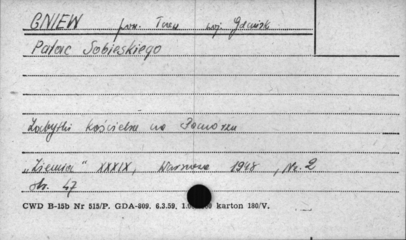 GNIEW pow. Tczew woj. Gdańsk
Pałac Sobieskiego
Zabytki kościelne na Pomorzu
„Ziemia" XXXIX, Warszawa 1948, Nr. 2
str. 47
CWD B-15b Nr 515/P. GDA-809. 6.3.59. karton 180/V.